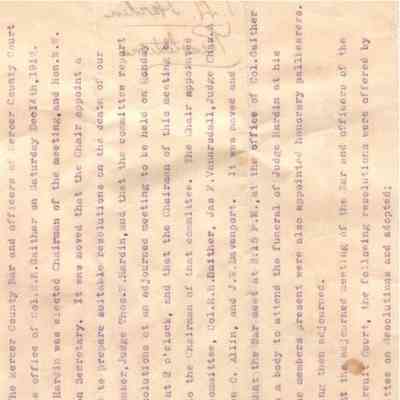 Hardin
Resolutions
he Mercer County Bar and officers of Mercer County Court
e office of Col.E.H.Gaither on Saturday Dec14th,191
Hardin was elected Chairman of the meeting,and Hon.E.W.
n Secretary. It was moved that the Chair appoint a
to prepare suitable resolutions on the death of our
mber,Judge Thos.T.Hardin,and that the committee report
solutions at an adjourned meeting to be held on Monday
at 2 o'clock, and that the Chairman of this meeting be
e the Chairman of that committee. The Chair appointed
ommittee, Col.E.H.Gaither, Jas F.Vanarsdall,Judge Chas.A
e C. Allin, and J.W.Davenport. It was moved and
hat the Bar meet at 2:15 P.M.,at the office of Col.Gaither
s a body to attend the funeral of Judge Hardin at his
he members present were also appointed honorary pallbearers.
ng then adjourned.
t the adjourned meeting of the Bar and officers of the
rcuit Court, the following resolutions were offered by
ittee on Resolutions and adopted;